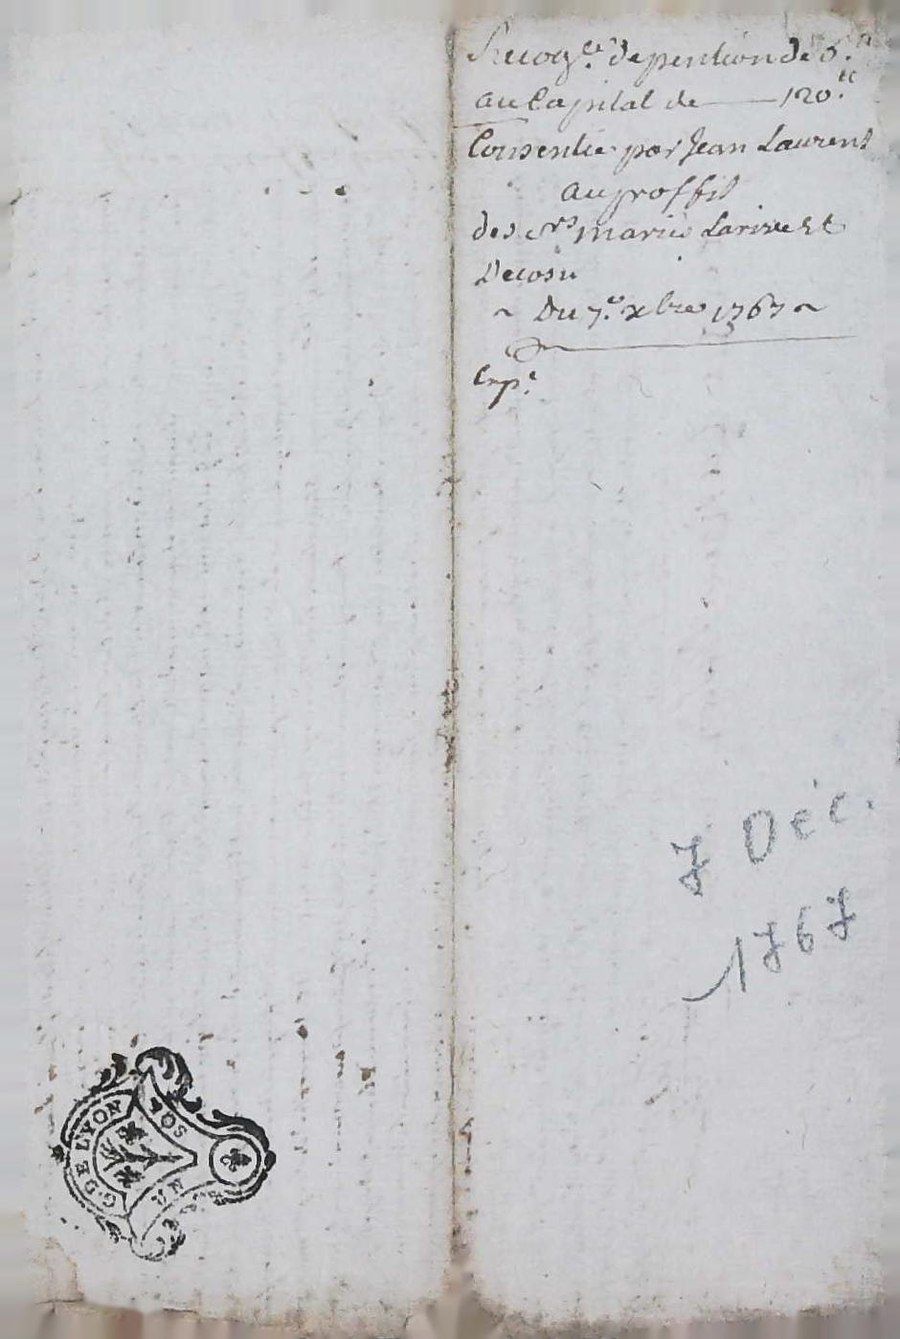 Recog.ce de pention de 6.tt
au Capital de — 120.tt
Consentie par Jean Laurent
au proffit
des Srs marie Larive Et
Decosu
~ Du 7.e xbre 1767 ~
Exp.e
7 Déc.
1767
G. DE LYON
SOS
UN